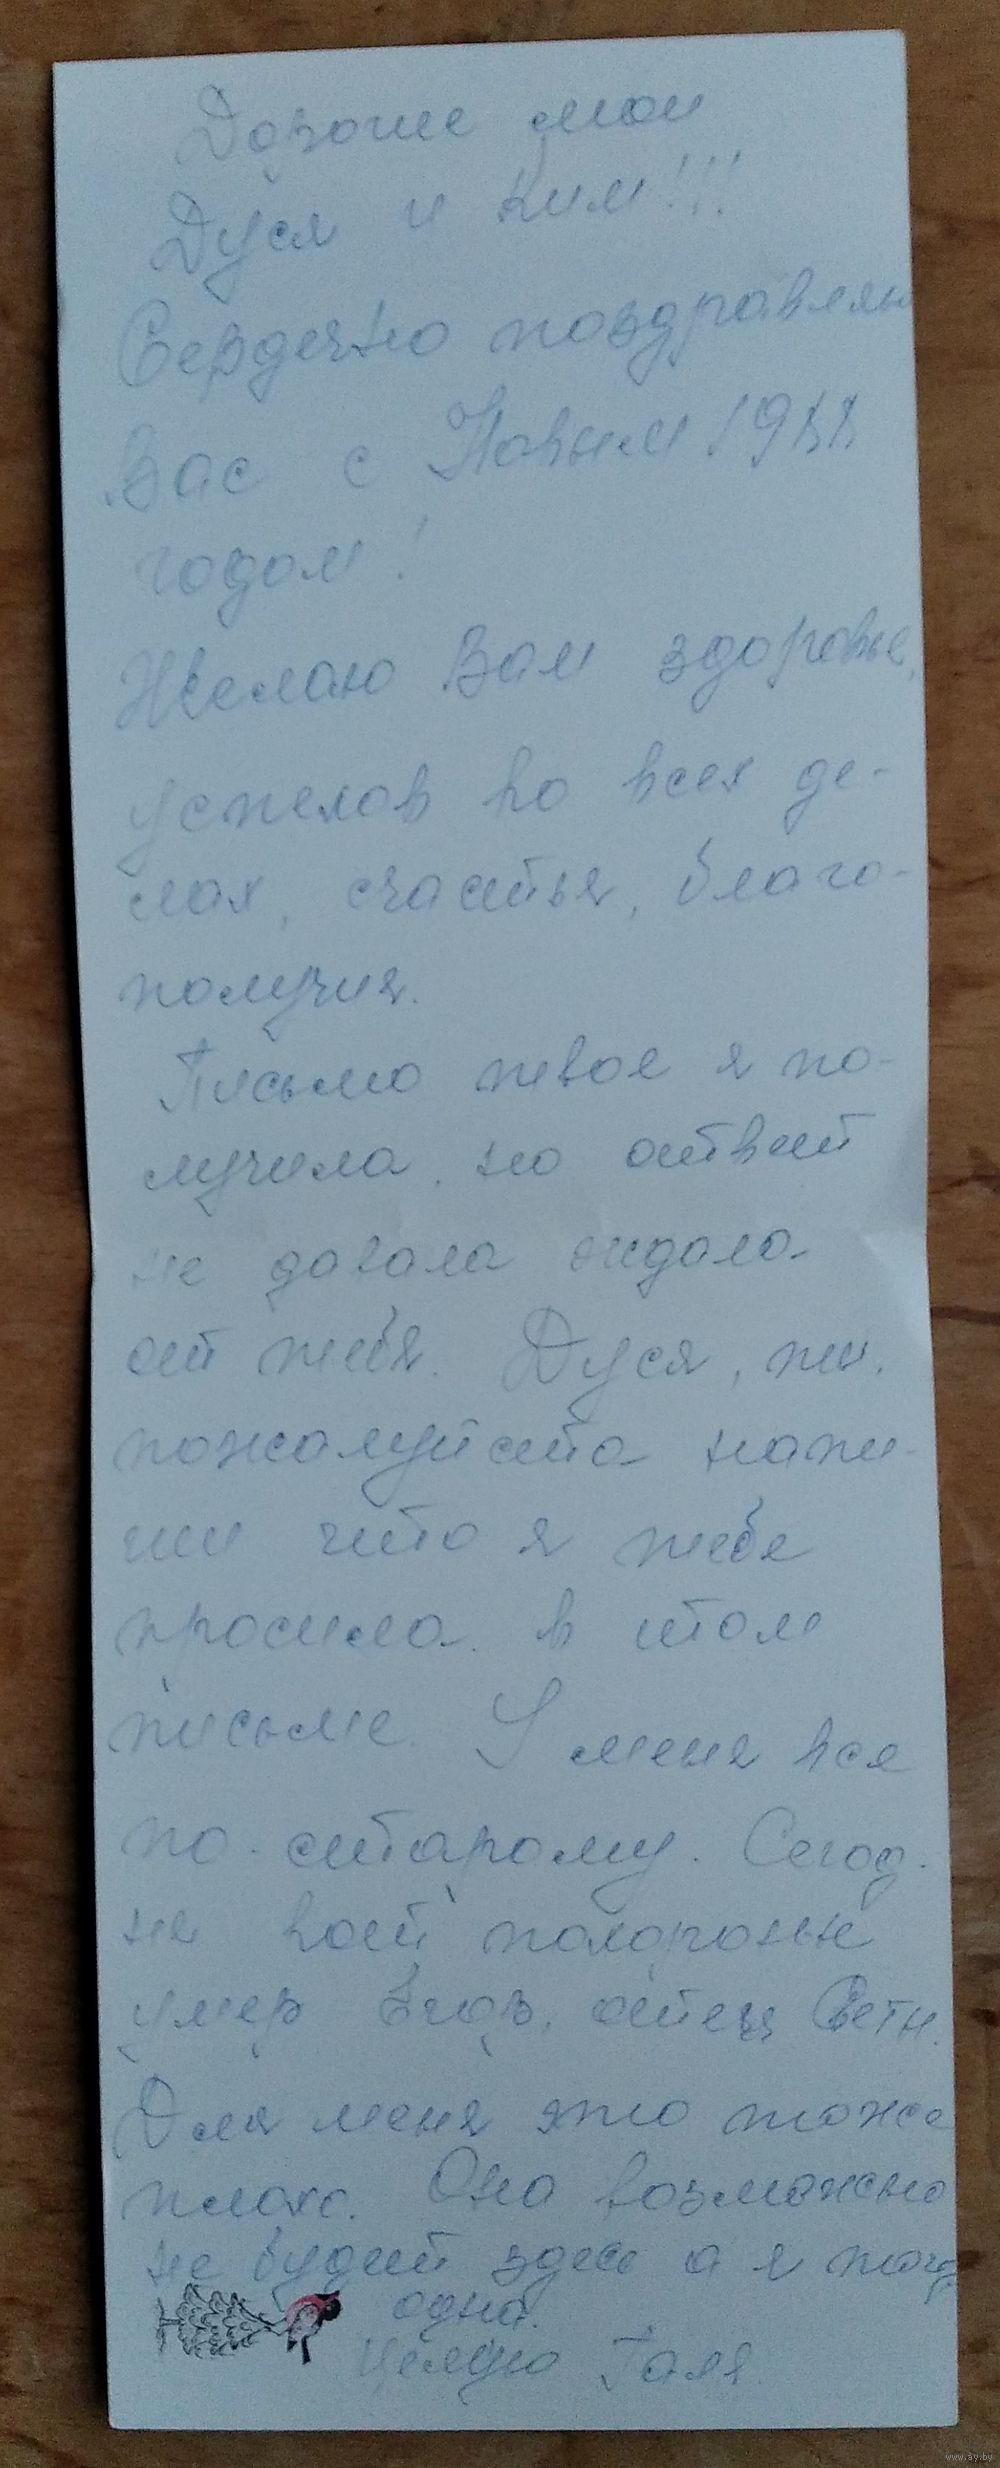 Дорогие мои
Дуся и Ким!!!
Сердечно поздравляю
Вас с Новым 1988
годом!
Желаю Вам здоровье,
успехов во всех де-
лах, счастья, благо-
получия.
Письмо твое я по-
лучила, но ответ
не давала ждала
от тебя. Дуся, ты.
пожалуйста напи-
ши что я тебе
просила в том
письме. У меня все
по-старому. Сегод.
не похороны
умер отец Светы.
Для меня это тоже
плохо. Она возможно
не будет здесь а я тогд
одна.
Целую Галя
www.ay.by